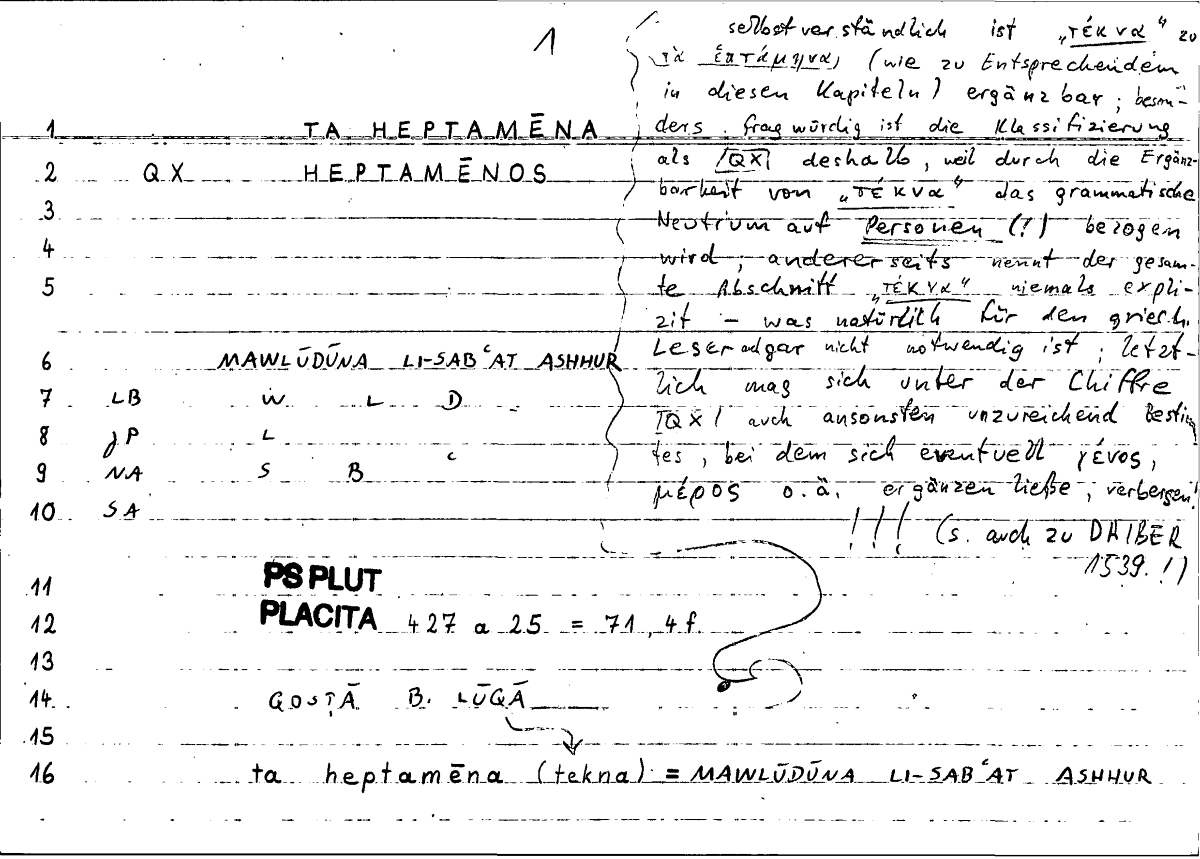 1
selbstverständlich ist „τέκνα“ zu
τὰ ἑπτάμηνα, (wie zu Entsprechendem
in diesen Kapiteln) ergänzbar; beson-
ders fragwürdig ist die Klassifizierung
als |QX| deshalb, weil durch die Ergänz-
barkeit von „τέκνα“ das grammatische
Neutrum auf Personen (!) bezogen
wird; andererseits nennt der gesam-
te Abschnitt „τέκνα“ niemals expli-
zit – was natürlich für den griech.
Leser nicht notwendig ist; letzt-
lich mag sich unter der Chiffre
|QX| auch ansonsten unzureichend
tes, bei dem sich eventuell γένος,
μέρος o.ä. ergänzen ließe, verbergen!
!!! (s. auch zu DAIBER
1539.!)
1 TA HEPTAMĒNA
2 QX HEPTAMĒNOS
3
4
5
6 MAWLŪDŪNA LI-SABʿAT ASHHUR
7 LB W L D
8 JP L
9 NA S B ʿ
10 SA
11 PS PLUT
12 PLACITA 427 a 25 = 71,4f.
13
14 QOSṬĀ B. LŪQĀ
15
16 ta heptamēna (tekna) = MAWLŪDŪNA LI-SABʿAT ASHHUR